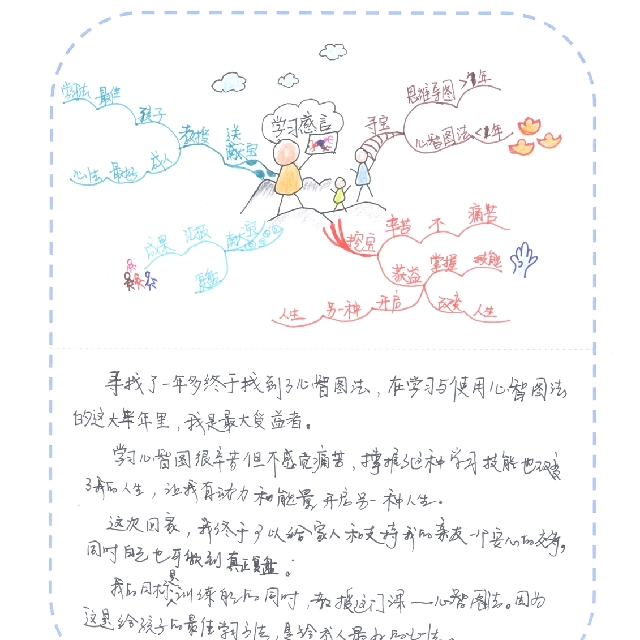 学习感言
寻宝
思维导图 >1年
心智图法 <1年
挖宝
辛苦 不 痛苦
获益 掌握 技能
改变 人生
开启 另一种 人生
献宝
汇报 成果
复盘
送
教授
孩子 最佳 学习法
成人 最好 心法
寻找了一年多终于找到了心智图法，在学习与使用心智图法
的这大半年里，我是最大受益者。
学习心智图很辛苦但不感觉痛苦，掌握了这种学习技能也改变
了我的人生，让我有动力和能量开启另一种人生。
这次回家，我终于可以给家人和支持我的亲友一个安心的交待，
同时自己也可做到真正复盘。
我的目标是训练 的同时，教授这门课——心智图法。因为
这是给孩子的最佳学习方法，是给成人最好的心法。